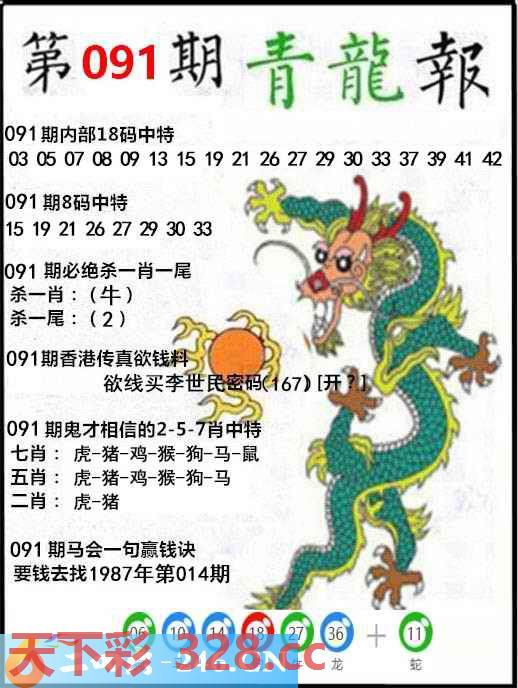 第091期青龍報
091期内部18码中特
03 05 07 08 09 13 15 19 21 26 27 29 30 33 37 39 41 42
091期8码中特
15 19 21 26 27 29 30 33
091 期必绝杀一肖一尾
杀一肖：（牛）
杀一尾：（2）
091期香港传真欲钱料
欲线买李世民密码(167) [开？]
091期鬼才相信的2-5-7肖中特
七肖： 虎-猪-鸡-猴-狗-马-鼠
五肖： 虎-猪-鸡-猴-狗-马
二肖： 虎-猪
091期马会一句赢钱诀
要钱去找1987年第014期
06 10 14 18 27 36 + 11
天下彩 328.cc
龙 蛇